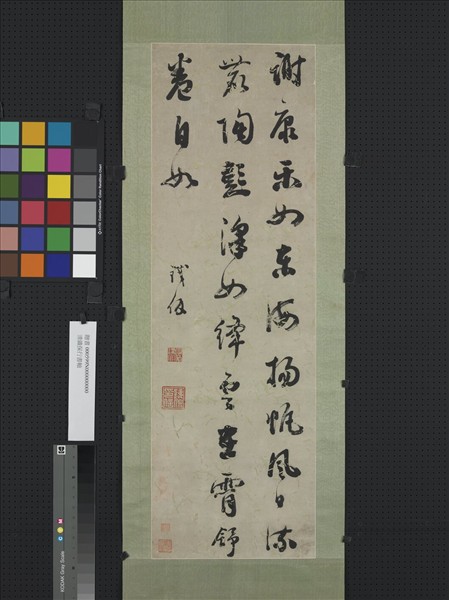 謝康樂如東海揚帆風日流
麗陶彭澤如絳雲在霄舒
卷自如
鐵保
清鐵保行書軸
KODAK Gray Scale